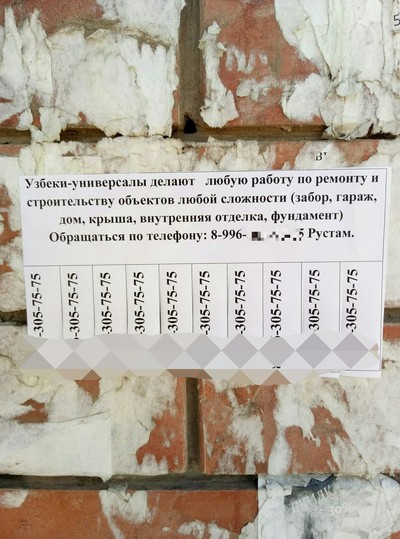 Узбеки-универсалы делают любую работу по ремонту и
строительству объектов любой сложности (забор, гараж,
дом, крыша, внутренняя отделка, фундамент)
Обращаться по телефону: 8-996- 5 Рустам.
-305-75-75
-305-75-75
-305-75-75
-305-75-75
-305-75-75
-305-75-75
-305-75-75
-305-75-75
-305-75-75
-305-75-75